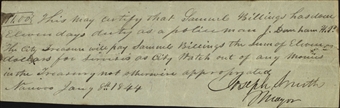 This may certify that Samuel Billings has done
Eleven days duty as a police man J. Dunham H. Pt.
The City Treasurer will pay Samuel Billings the sum of Eleven
dollars for services as City Watch out of any Monies
in the Treasury not otherwise appropriated
Nauvoo Jany 8th 1844
Joseph Smith
Mayor